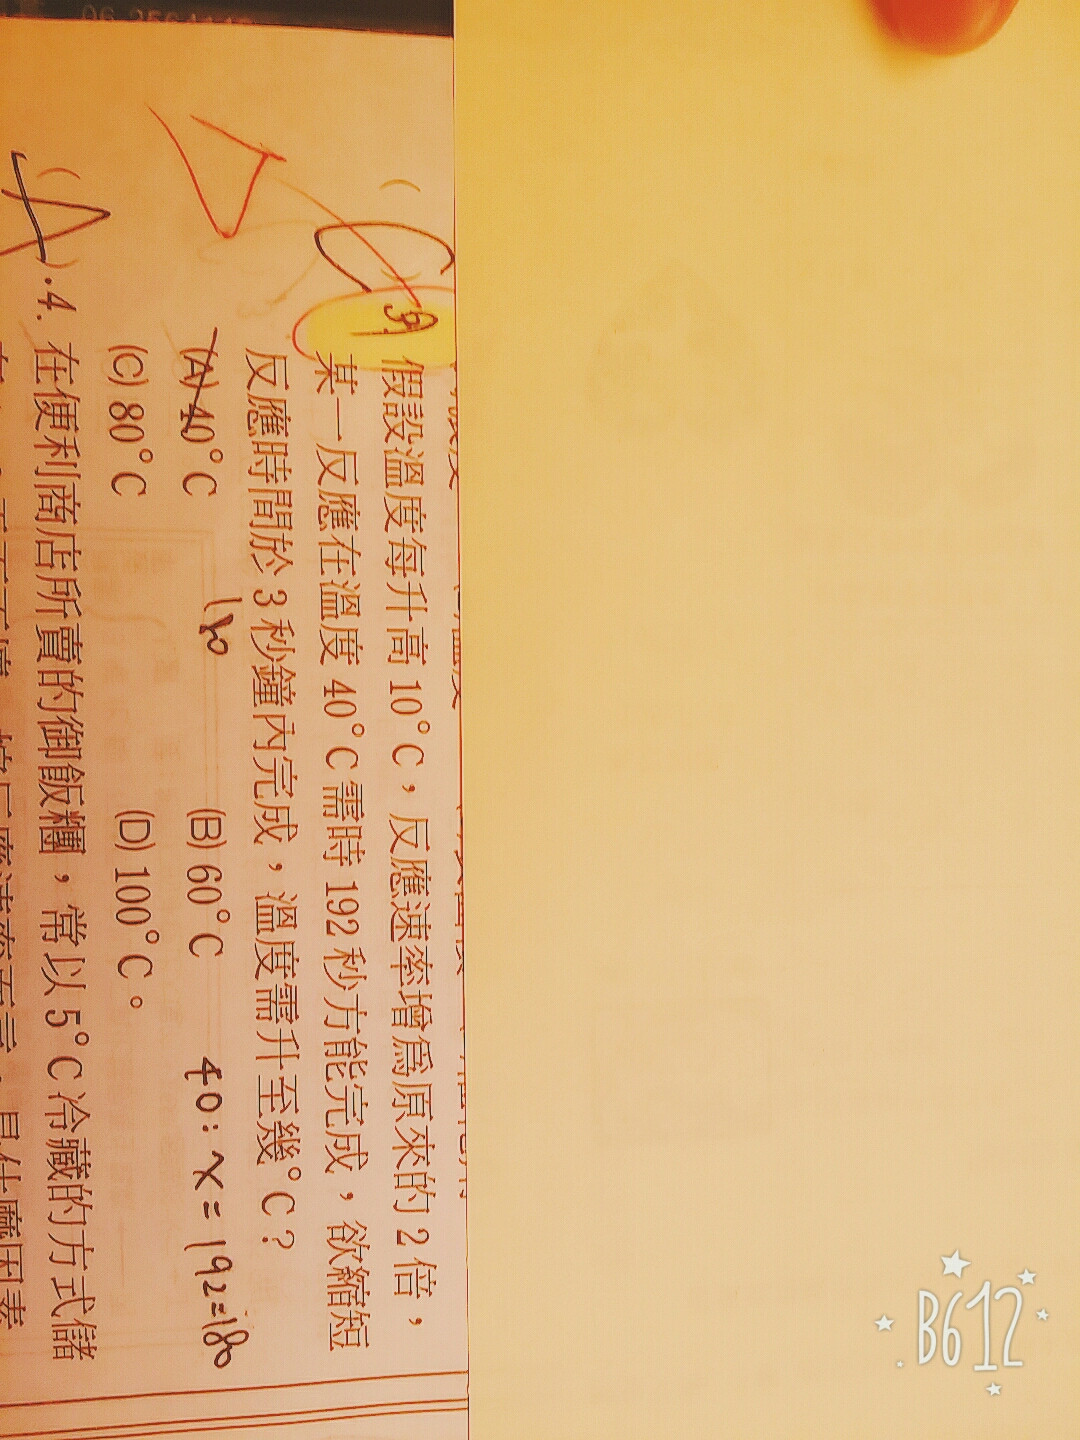 (C)9. 假設溫度每升高 10°C，反應速率增為原來的 2 倍，
某一反應在溫度 40°C 需時 192 秒方能完成，欲縮短
反應時間於 3 秒鐘內完成，溫度需升至幾°C？
(A) 40°C (B) 60°C
(C) 80°C (D) 100°C。
180
40:x=192=180
(A).4. 在便利商店所賣的御飯糰，常以 5°C 冷藏的方式儲
B612